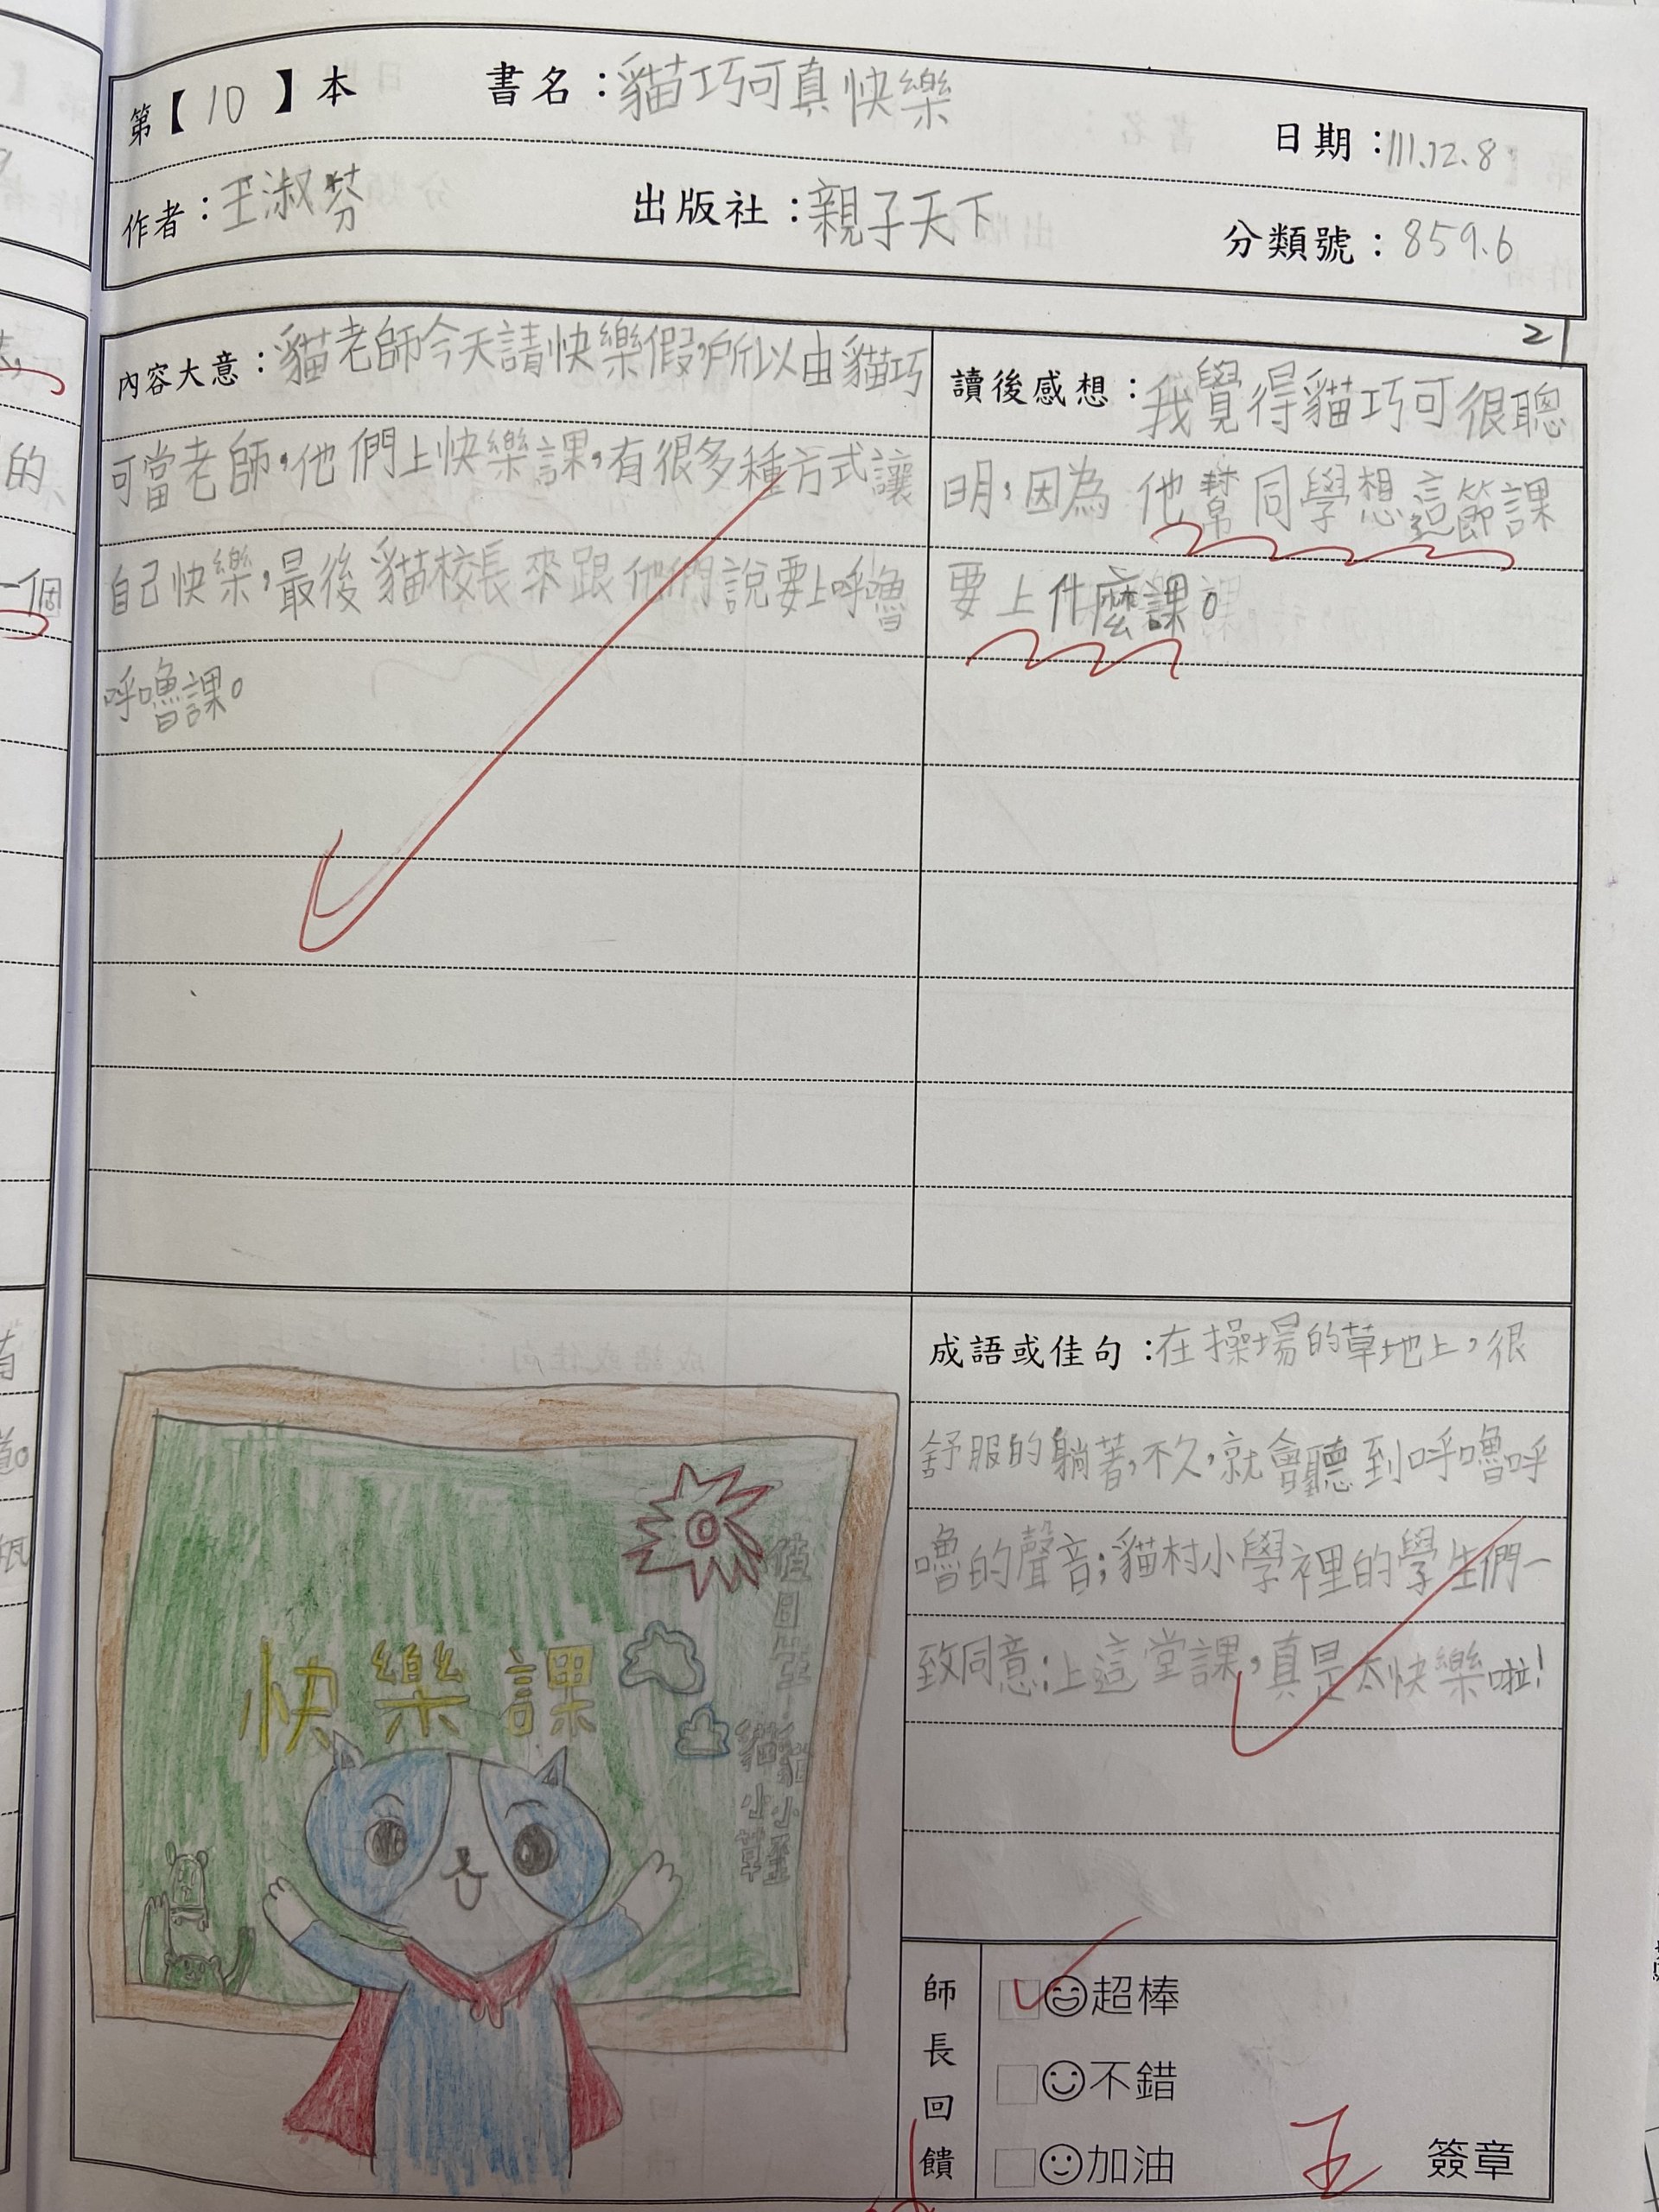 第【10】本 書名：貓巧可真快樂 日期：111.12.8
作者：王淑芬 出版社：親子天下 分類號：859.6
21
內容大意：貓老師今天請快樂假，所以由貓巧
可當老師，他們上快樂課，有很多種方式讓
自己快樂，最後貓校長來跟他們說要上呼嚕
呼嚕課。
讀後感想：我覺得貓巧可很聰
明，因為他幫同學想這節課
要上什麼課。
快樂課
值日生：
貓小草
成語或佳句：在操場的草地上，很
舒服的躺著，不久，就會聽到呼嚕呼
嚕的聲音；貓村小學裡的學生們一
致同意：上這堂課，真是太快樂啦！
師長回饋
超棒
不錯
加油
王 簽章